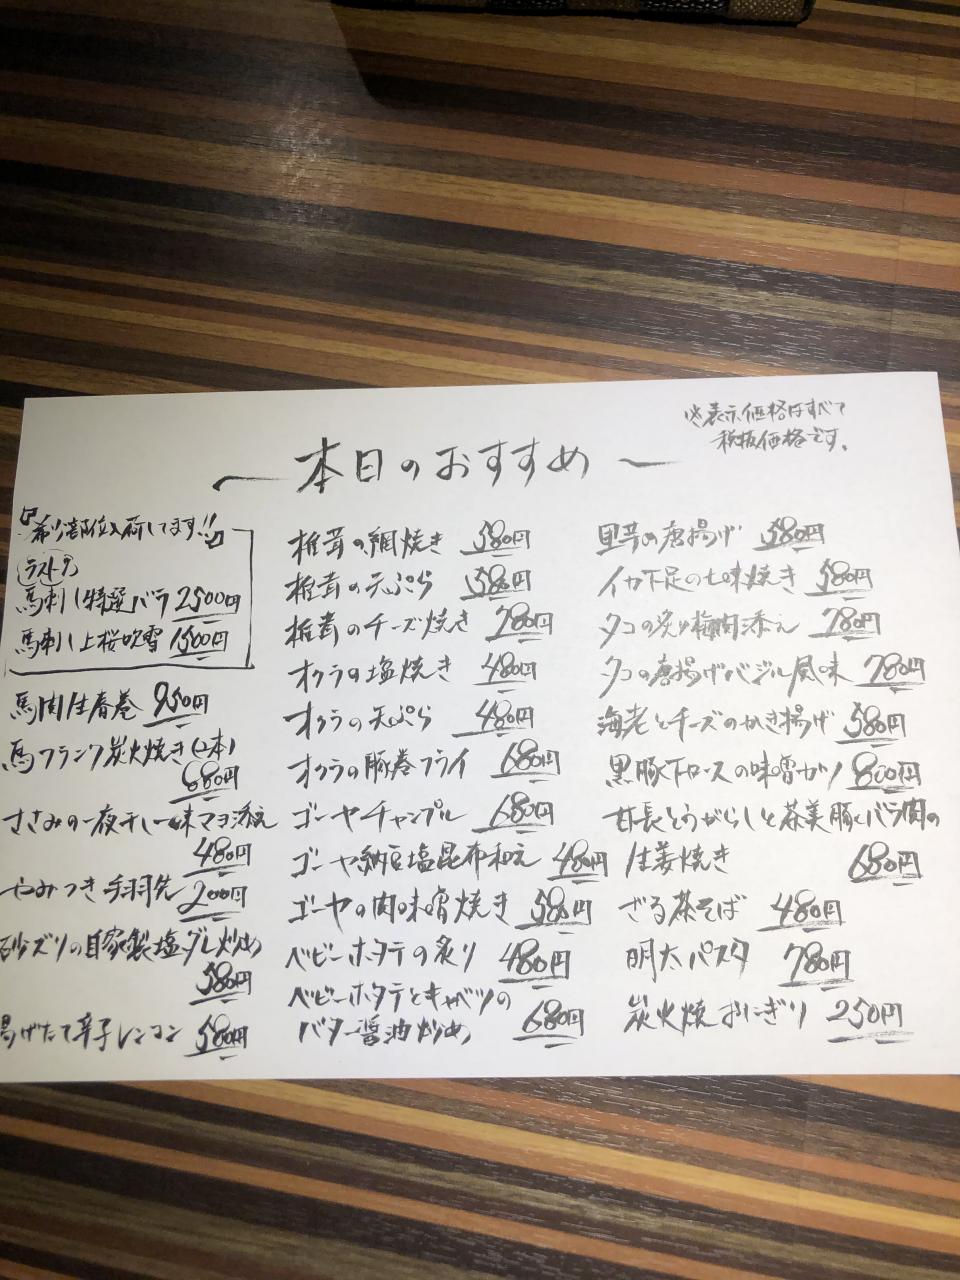 ※表示価格はすべて
税抜価格です。
〜本日のおすすめ〜
『希少部位入荷してます!!』
馬刺し特選バラ 2500円
馬刺し上桜吹雪 1500円
馬肉生春巻 950円
馬フランク炭火焼き(2本)
680円
ささみの一夜干し一味マヨ添え
480円
やみつき手羽先 200円
砂ズリの自家製塩ダレ炒め
580円
揚げたて辛子レンコン 580円
椎茸の網焼き 580円
椎茸の天ぷら 580円
椎茸のチーズ焼き 780円
オクラの塩焼き 480円
オクラの天ぷら 480円
オクラの豚巻フライ 680円
ゴーヤチャンプル 680円
ゴーヤ納豆塩昆布和え 480円
ゴーヤの肉味噌焼き 580円
ベビーホタテの炙り 480円
ベビーホタテとキャベツの
バター醤油炒め 680円
里芋の唐揚げ 580円
イカ下足の七味焼き 580円
タコの炙り梅肉添え 780円
タコの唐揚げバジル風味 780円
海老とチーズのかき揚げ 580円
黒豚下ロースの味噌カツ 800円
甘長とうがらしと茶美豚バラ肉の
生姜焼き 680円
ざる茶そば 480円
明太パスタ 780円
炭火焼おにぎり 250円